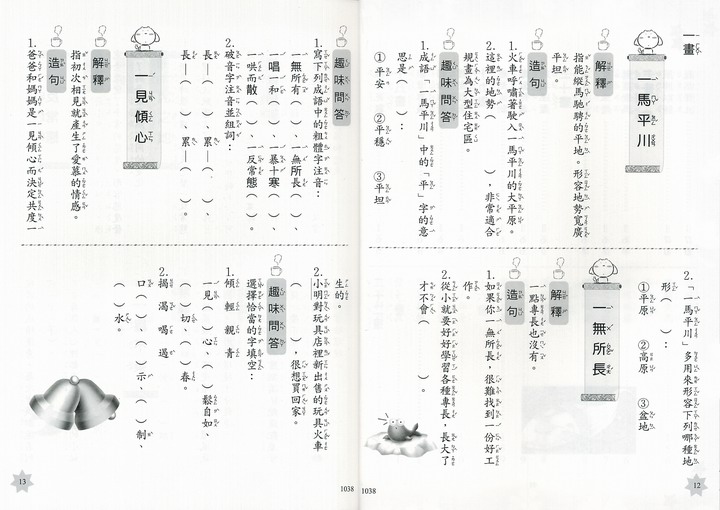 一畫
一馬平川
解釋
指能縱馬馳騁的平地。形容地勢寬廣
平坦。
造句
1.火車呼嘯著駛入一馬平川的大平原。
2.這裡的地勢（　　　），非常適合
規畫為大型住宅區。
趣味問答
1.成語「一馬平川」中的「平」字的意
思是（　　）：
①平安　②平穩　③平坦
2.「一馬平川」多用來形容下列哪種地
形（　　）：
①平原　②高原　③盆地
一無所長
解釋
一點專長也沒有。
造句
1.如果你一無所長，很難找到一份好工
作。
2.從小就要好好學習各種專長，長大了
才不會（　　　）。
12
1038
趣味問答
1.寫下列成語中的粗體字注音：
一無所有（　）、一無所長（　）、
一唱一和（　）、一暴十寒（　）、
一哄而散（　）、一反常態（　）。
2.破音字注音並組詞：
長—（　）、累—（　）、
長—（　）、累—（　）。
一見傾心
解釋
指初次相見就產生了愛慕的情感。
造句
1.爸爸和媽媽是一見傾心而決定共度一
生的。
2.小明對玩具店裡新出售的玩具火車
（　　　），很想買回家。
趣味問答
選擇恰當的字填空：
1.傾　輕　親　青
一見（　）心、（　）鬆自如、
（　）切、（　）春。
2.揭　渴　喝　遏
口（　）、（　）示、（　）制、
（　）水。
13
1038